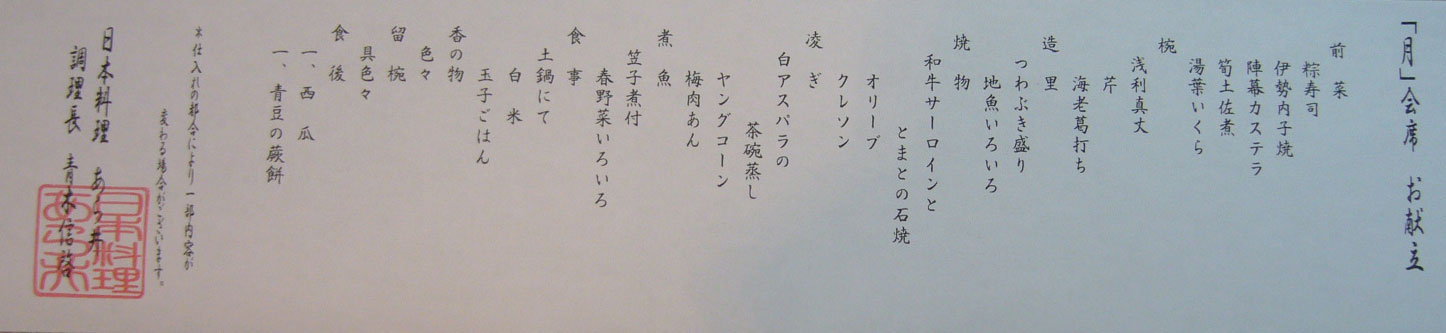 「月」会席 お献立
前菜
粽寿司
伊勢内子焼
陣幕カステラ
筍土佐煮
湯葉いくら
椀
浅利真丈
芹
海老葛打ち
造里
つわぶき盛り
地魚いろいろ
焼物
和牛サーロインと
とまとの石焼
オリーブ
クレソン
凌ぎ
白アスパラの
茶碗蒸し
ヤングコーン
梅肉あん
煮魚
笠子煮付
春野菜いろいろ
食事
土鍋にて
白米
玉子ごはん
香の物
色々
留椀
具色々
食後
一、西瓜
一、青豆の蕨餅
*仕入れの都合により一部内容が
変わる場合がございます。
日本料理 あら井
調理長 青木信啓
日本料理
あら井